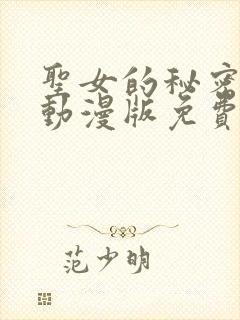 聖女的秘密
動漫版免費
范少明